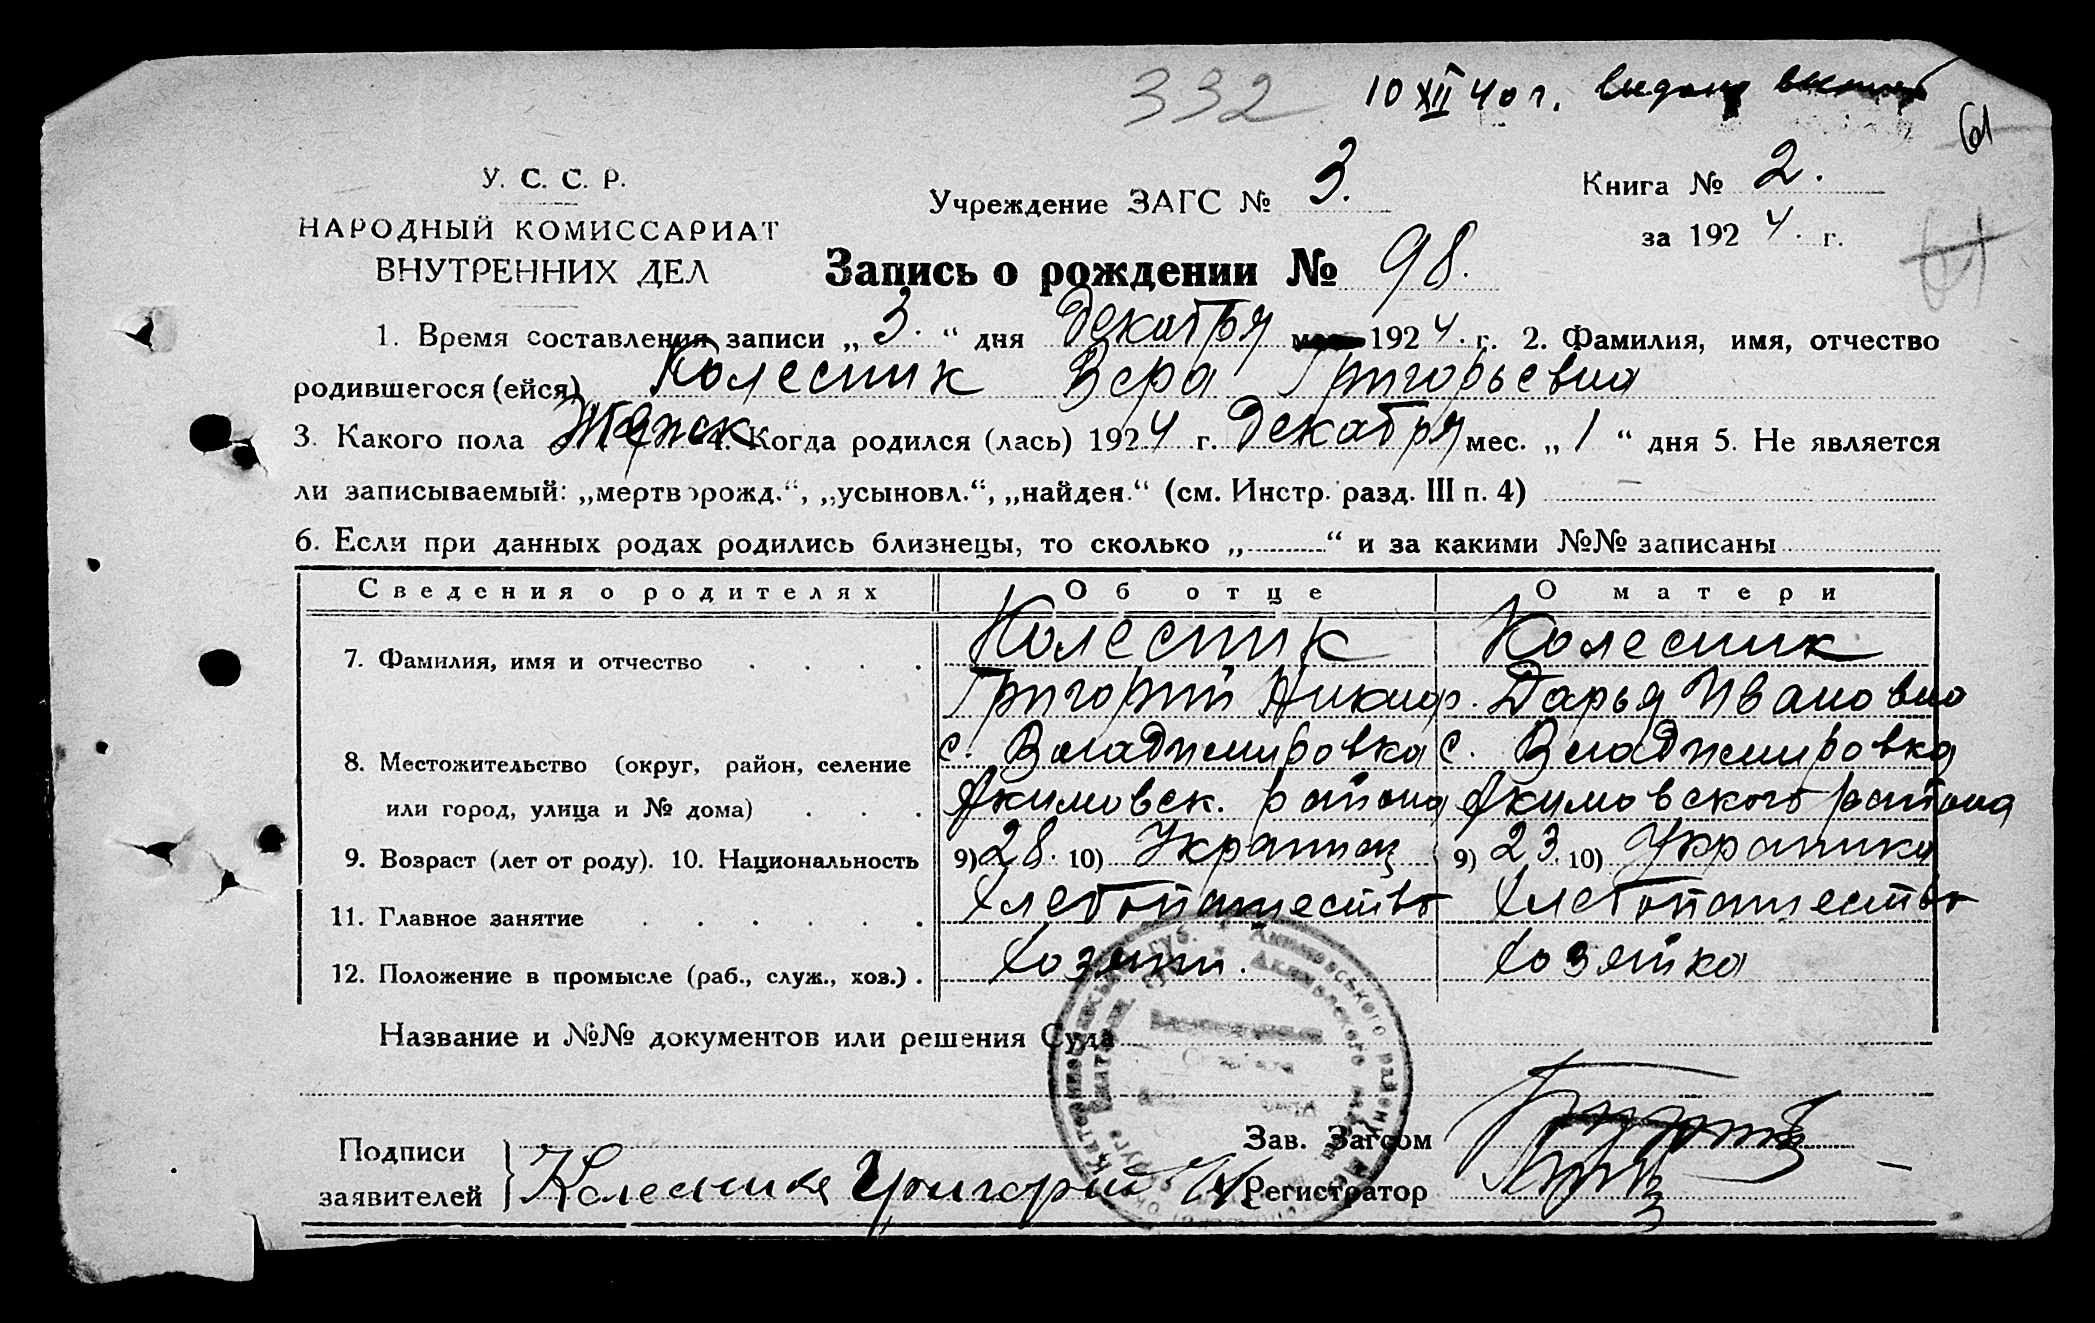 332 10 XII 40 г.
61
У. С. С. Р.
НАРОДНЫЙ КОМИССАРИАТ
ВНУТРЕННИХ ДЕЛ
Учреждение ЗАГС № 3.
Книга № 2.
за 1924. г.
61
Запись о рождении № 98.
1. Время составления записи „3.“ дня Декабря 1924. г. 2. Фамилия, имя, отчество
родившегося (ейся) Колесник Вера Григорьевна
3. Какого пола Женск 4. Когда родился (лась) 1924 г. Декабря мес. „1“ дня 5. Не является
ли записываемый: „мертворожд.“, „усыновл.“, „найден.“ (см. Инстр. разд. III п. 4) —
6. Если при данных родах родились близнецы, то сколько „..........“ и за какими №№ записаны
Сведения о родителях Об отце О матери
7. Фамилия, имя и отчество . . . . Колесник Колесник
Григорий Никиф. Дарья Ивановна
8. Местожительство (округ, район, селение с. Владимировка с. Владимировка
или город, улица и № дома) . . . Акимовск. района Акимовского района
9. Возраст (лет от роду). 10. Национальность 9) 28. 10) Украинец 9) 23. 10) Украинка
11. Главное занятие . . . . . . Хлебопашество Хлебопашество
12. Положение в промысле (раб., служ., хоз.) . Хозяин. Хозяйка
Название и №№ документов или решения Суда
Подписи
заявителей
Колесник Григорий
Зав. Загсом
Регистратор